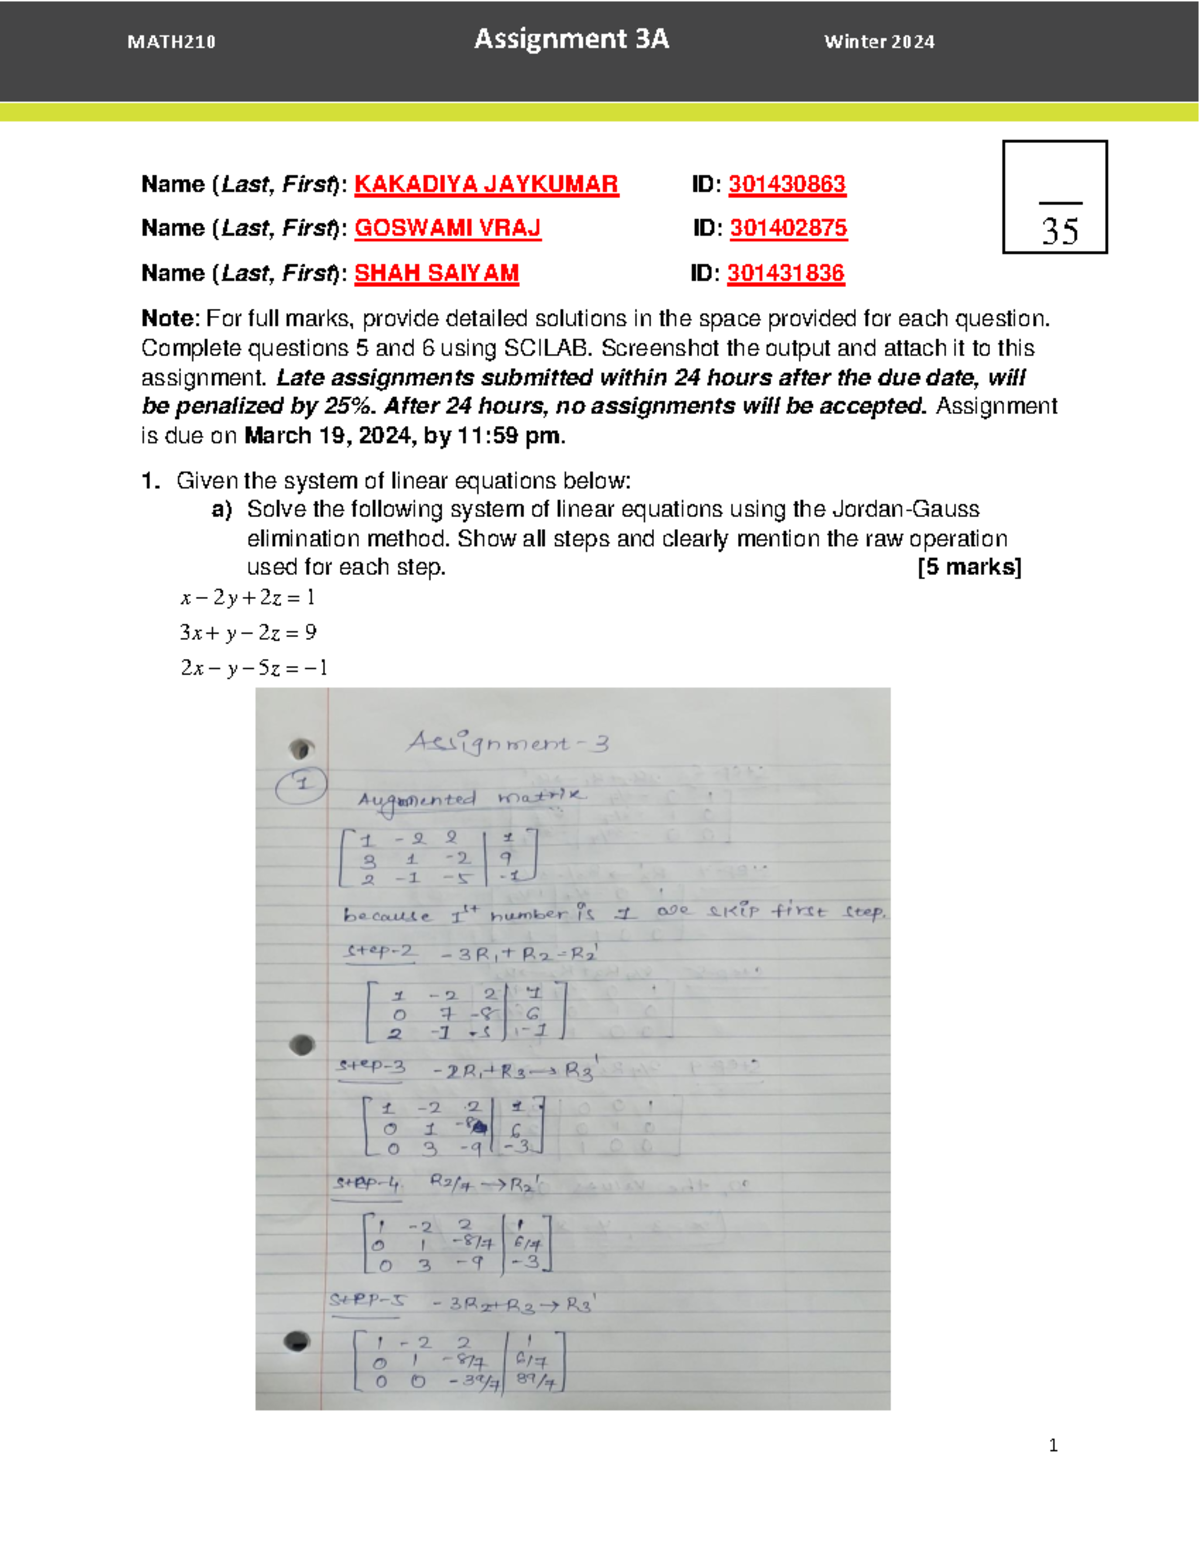 MATH210 Assignment 3A Winter 2024
Name (Last, First): KAKADIYA JAYKUMAR ID: 301430863
Name (Last, First): GOSWAMI VRAJ ID: 301402875
Name (Last, First): SHAH SAIYAM ID: 301431836
35
Note: For full marks, provide detailed solutions in the space provided for each question.
Complete questions 5 and 6 using SCILAB. Screenshot the output and attach it to this
assignment. Late assignments submitted within 24 hours after the due date, will
be penalized by 25%. After 24 hours, no assignments will be accepted. Assignment
is due on March 19, 2024, by 11:59 pm.
1. Given the system of linear equations below:
a) Solve the following system of linear equations using the Jordan-Gauss
elimination method. Show all steps and clearly mention the raw operation
used for each step. [5 marks]
x − 2y + 2z = 1
3x + y − 2z = 9
2x − y − 5z = −1
Assignment-3
1
Augmented matrix
1 -2 2 | 1
3 1 -2 | 9
2 -1 -5 | -1
because 1st number is 1 we skip first step.
step-2 -3R1 + R2 = R2'
1 -2 2 | 1
0 7 -8 | 6
2 -1 -5 | -1
step-3 -2R1 + R3 → R3'
1 -2 2 | 1
0 1 -8 | 6
0 3 -9 | -3
step-4 R2/7 → R2'
1 -2 2 | 1
0 1 -8/7 | 6/7
0 3 -9 | -3
step-5 -3R2+R3 → R3'
1 -2 2 | 1
0 1 -8/7 | 6/7
0 0 -39/7 | 89/7
1